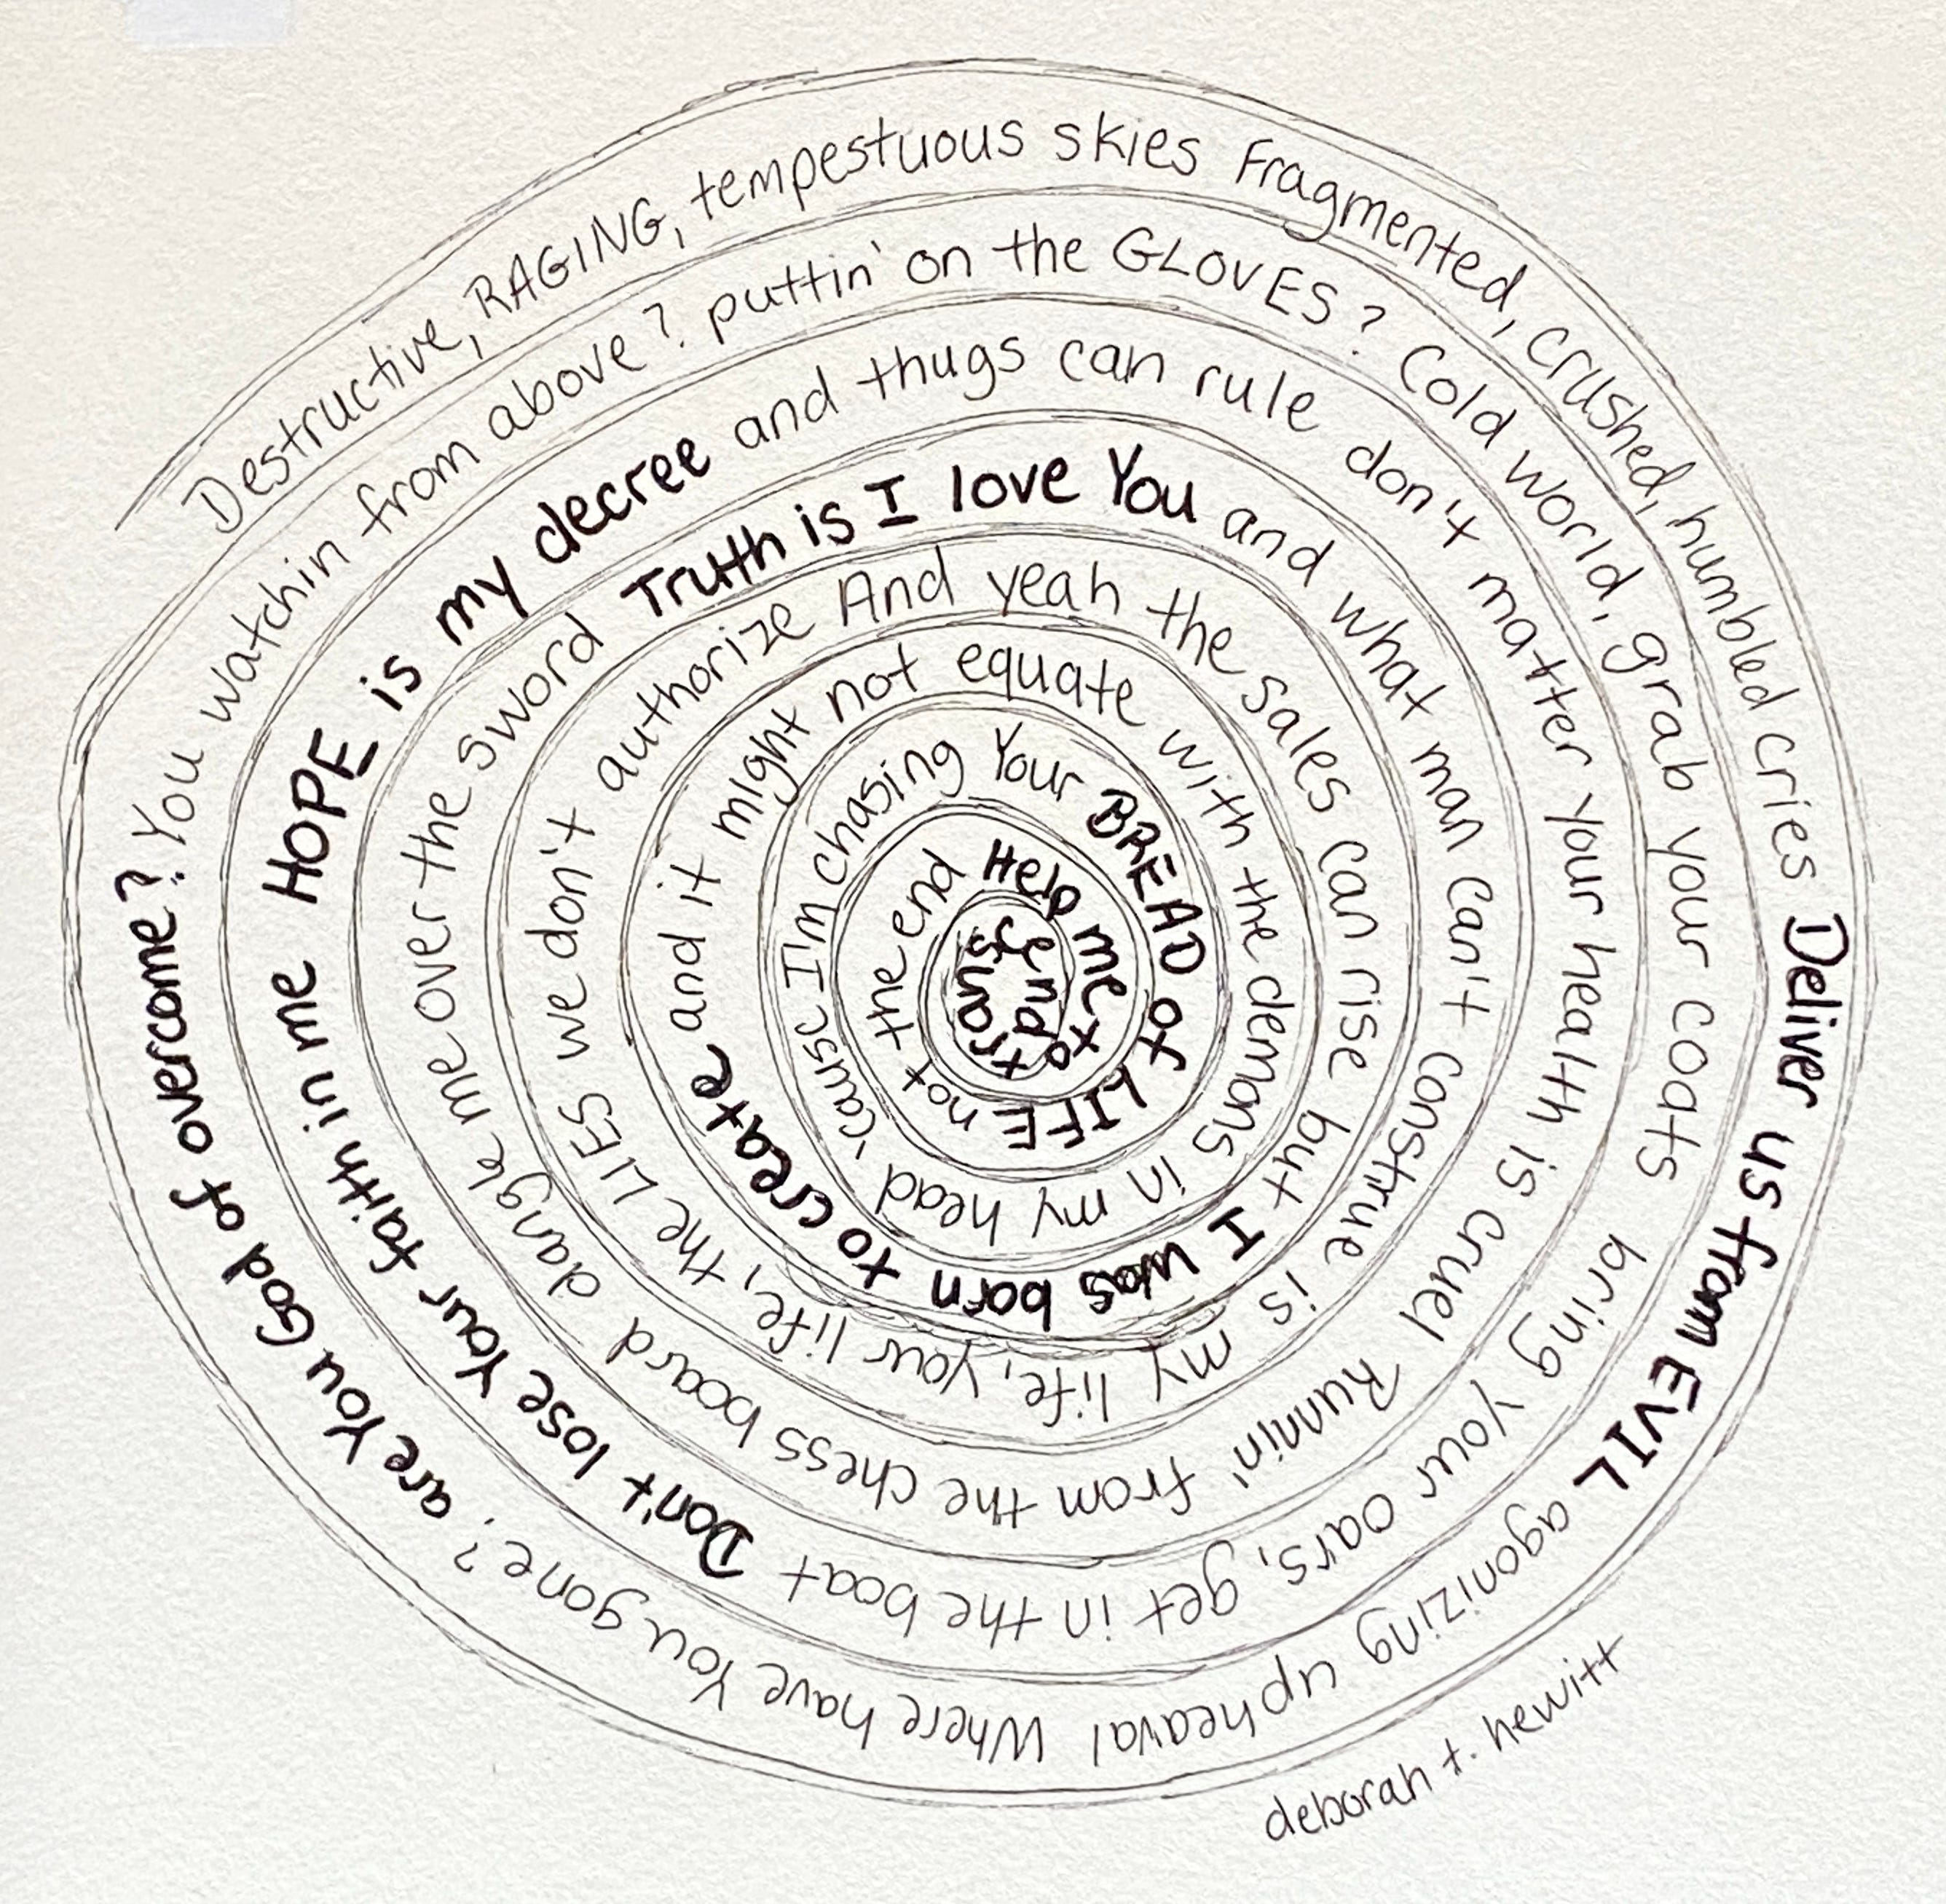 Destructive, RAGING, tempestuous skies Fragmented, crushed, humbled cries Deliver us from EVIL agonizing upheaval Where have You gone?, are You God of overcome?
You watchin from above? puttin' on the GLOVES? Cold world, grab your coats bring your oars, get in the boat Don't lose Your faith in me
HOPE is my decree and thugs can rule don't matter your health is cruel Runnin' from the chess board dangle me over the sword
Truth is I love You and what man can't construe is my life, your life, the LIES we don't authorize
And yeah the sales can rise but I was born to create and it might not equate with the demons in my head 'cause I'm chasing Your BREAD of LIFE not the end Help me to transcend
deborah t. hewitt